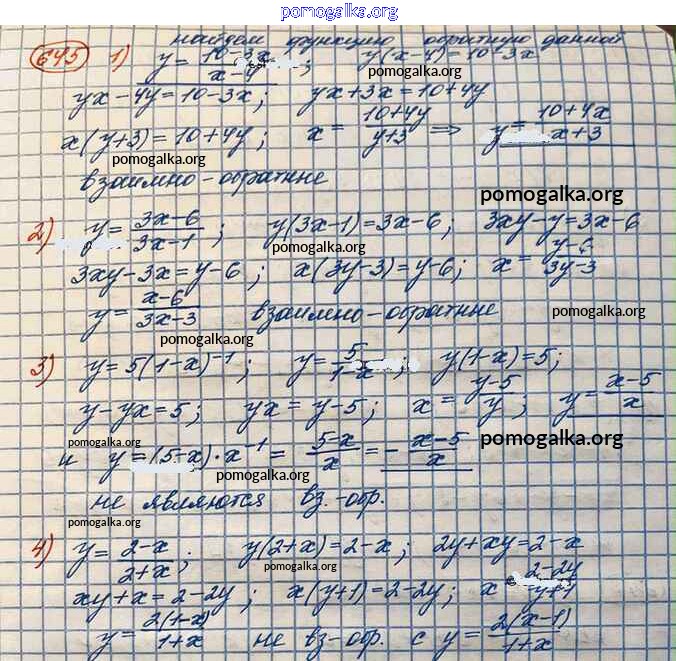 pomogalka.org
найдем функцию обратную данной
645 1) y = (10-3x)/(x-4); y(x-4)=10-3x
pomogalka.org
yx-4y=10-3x; yx+3x=10+4y
x(y+3)=10+4y; x = (10+4y)/(y+3) ⇒ y = (10+4x)/(x+3)
pomogalka.org
взаимно-обратные
pomogalka.org
2) y = (3x-6)/(3x-1); y(3x-1)=3x-6; 3xy-y=3x-6
pomogalka.org
3xy-3x=y-6; x(3y-3)=y-6; x = (y-6)/(3y-3)
y = (x-6)/(3x-3) взаимно-обратные
pomogalka.org
pomogalka.org
3) y=5(1-x)⁻¹; y = 5/(1-x); y(1-x)=5;
y-yx=5; yx=y-5; x = (y-5)/y; y = (x-5)/x
pomogalka.org
и y=(5-x)·x⁻¹ = (5-x)/x = -(x-5)/x
pomogalka.org
не являются вз.-обр.
pomogalka.org
4) y = (2-x)/(2+x); y(2+x)=2-x; 2y+xy=2-x
pomogalka.org
xy+x=2-2y; x(y+1)=2-2y; x = (2-2y)/(y+1)
y = 2(1-x)/(1+x) не вз-обр. с y = 2(x-1)/(1+x)